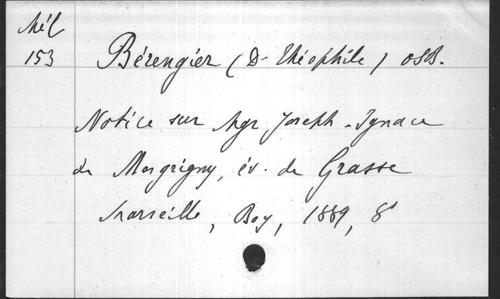 Mél
153
Bérengier (D. Théophile) OSB.
Notice sur Mgr Joseph-Ignace
de Mesgrigny, év. de Grasse
Marseille, Boy, 1889, 8°